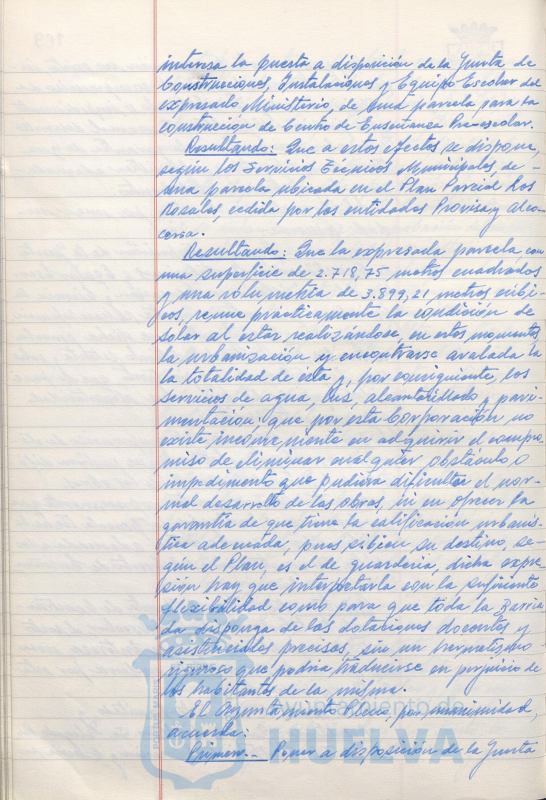 interesa la puesta a disposición de la Junta de
Construcciones, Instalaciones y Equipo Escolar del
expresado Ministerio, de una parcela para la
construcción de Centro de Enseñanza Pre-escolar.
Resultando: Que a estos efectos se dispone,
según los Servicios Técnicos Municipales, de
una parcela ubicada en el Plan Parcial Los
Rosales, cedida por las entidades Provisa y
Resultando: Que la expresada parcela con
una superficie de 2.718,75 metros cuadrados
y una volumetria de 3.899,21 metros cúbi-
cos, reune prácticamente la condición de
solar al estar realizándose, en estos momentos
la urbanización y encontrarse avalada la
la totalidad de ésta y, por consiguiente, los
servicios de agua, luz, alcantarillado y pavi-
mentación; que por esta Corporación no
existe inconveniente en adquirir el compro-
miso de eliminar cualquier obstáculo o
impedimento que pudiera dificultar el nor-
mal desarrollo de las obras, ni en ofrecer la
garantía de que tiene la calificación urbanís-
tica adecuada, pues si bien su destino, se-
gún el Plan, es el de guardería, dicha expre-
sión hay que interpretarla con la suficiente
flexibilidad como para que toda la Barria-
da disponga de las dotaciones docentes y
asistenciales precisas, sin un hermetismo
riguroso que podria traducirse en perjuicio de
los habitantes de la misma.
El Ayuntamiento Pleno, por unanimidad,
acuerda:
Primero.- Poner a disposición de la Junta
Ayuntamiento de
HUELVA